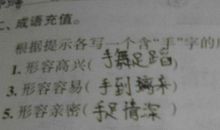 二、成语充值。
根据提示各写一个含"手"字的
1.形容高兴(手舞足蹈
3.形容容易(手到擒来
5.形容亲密(手足情深)